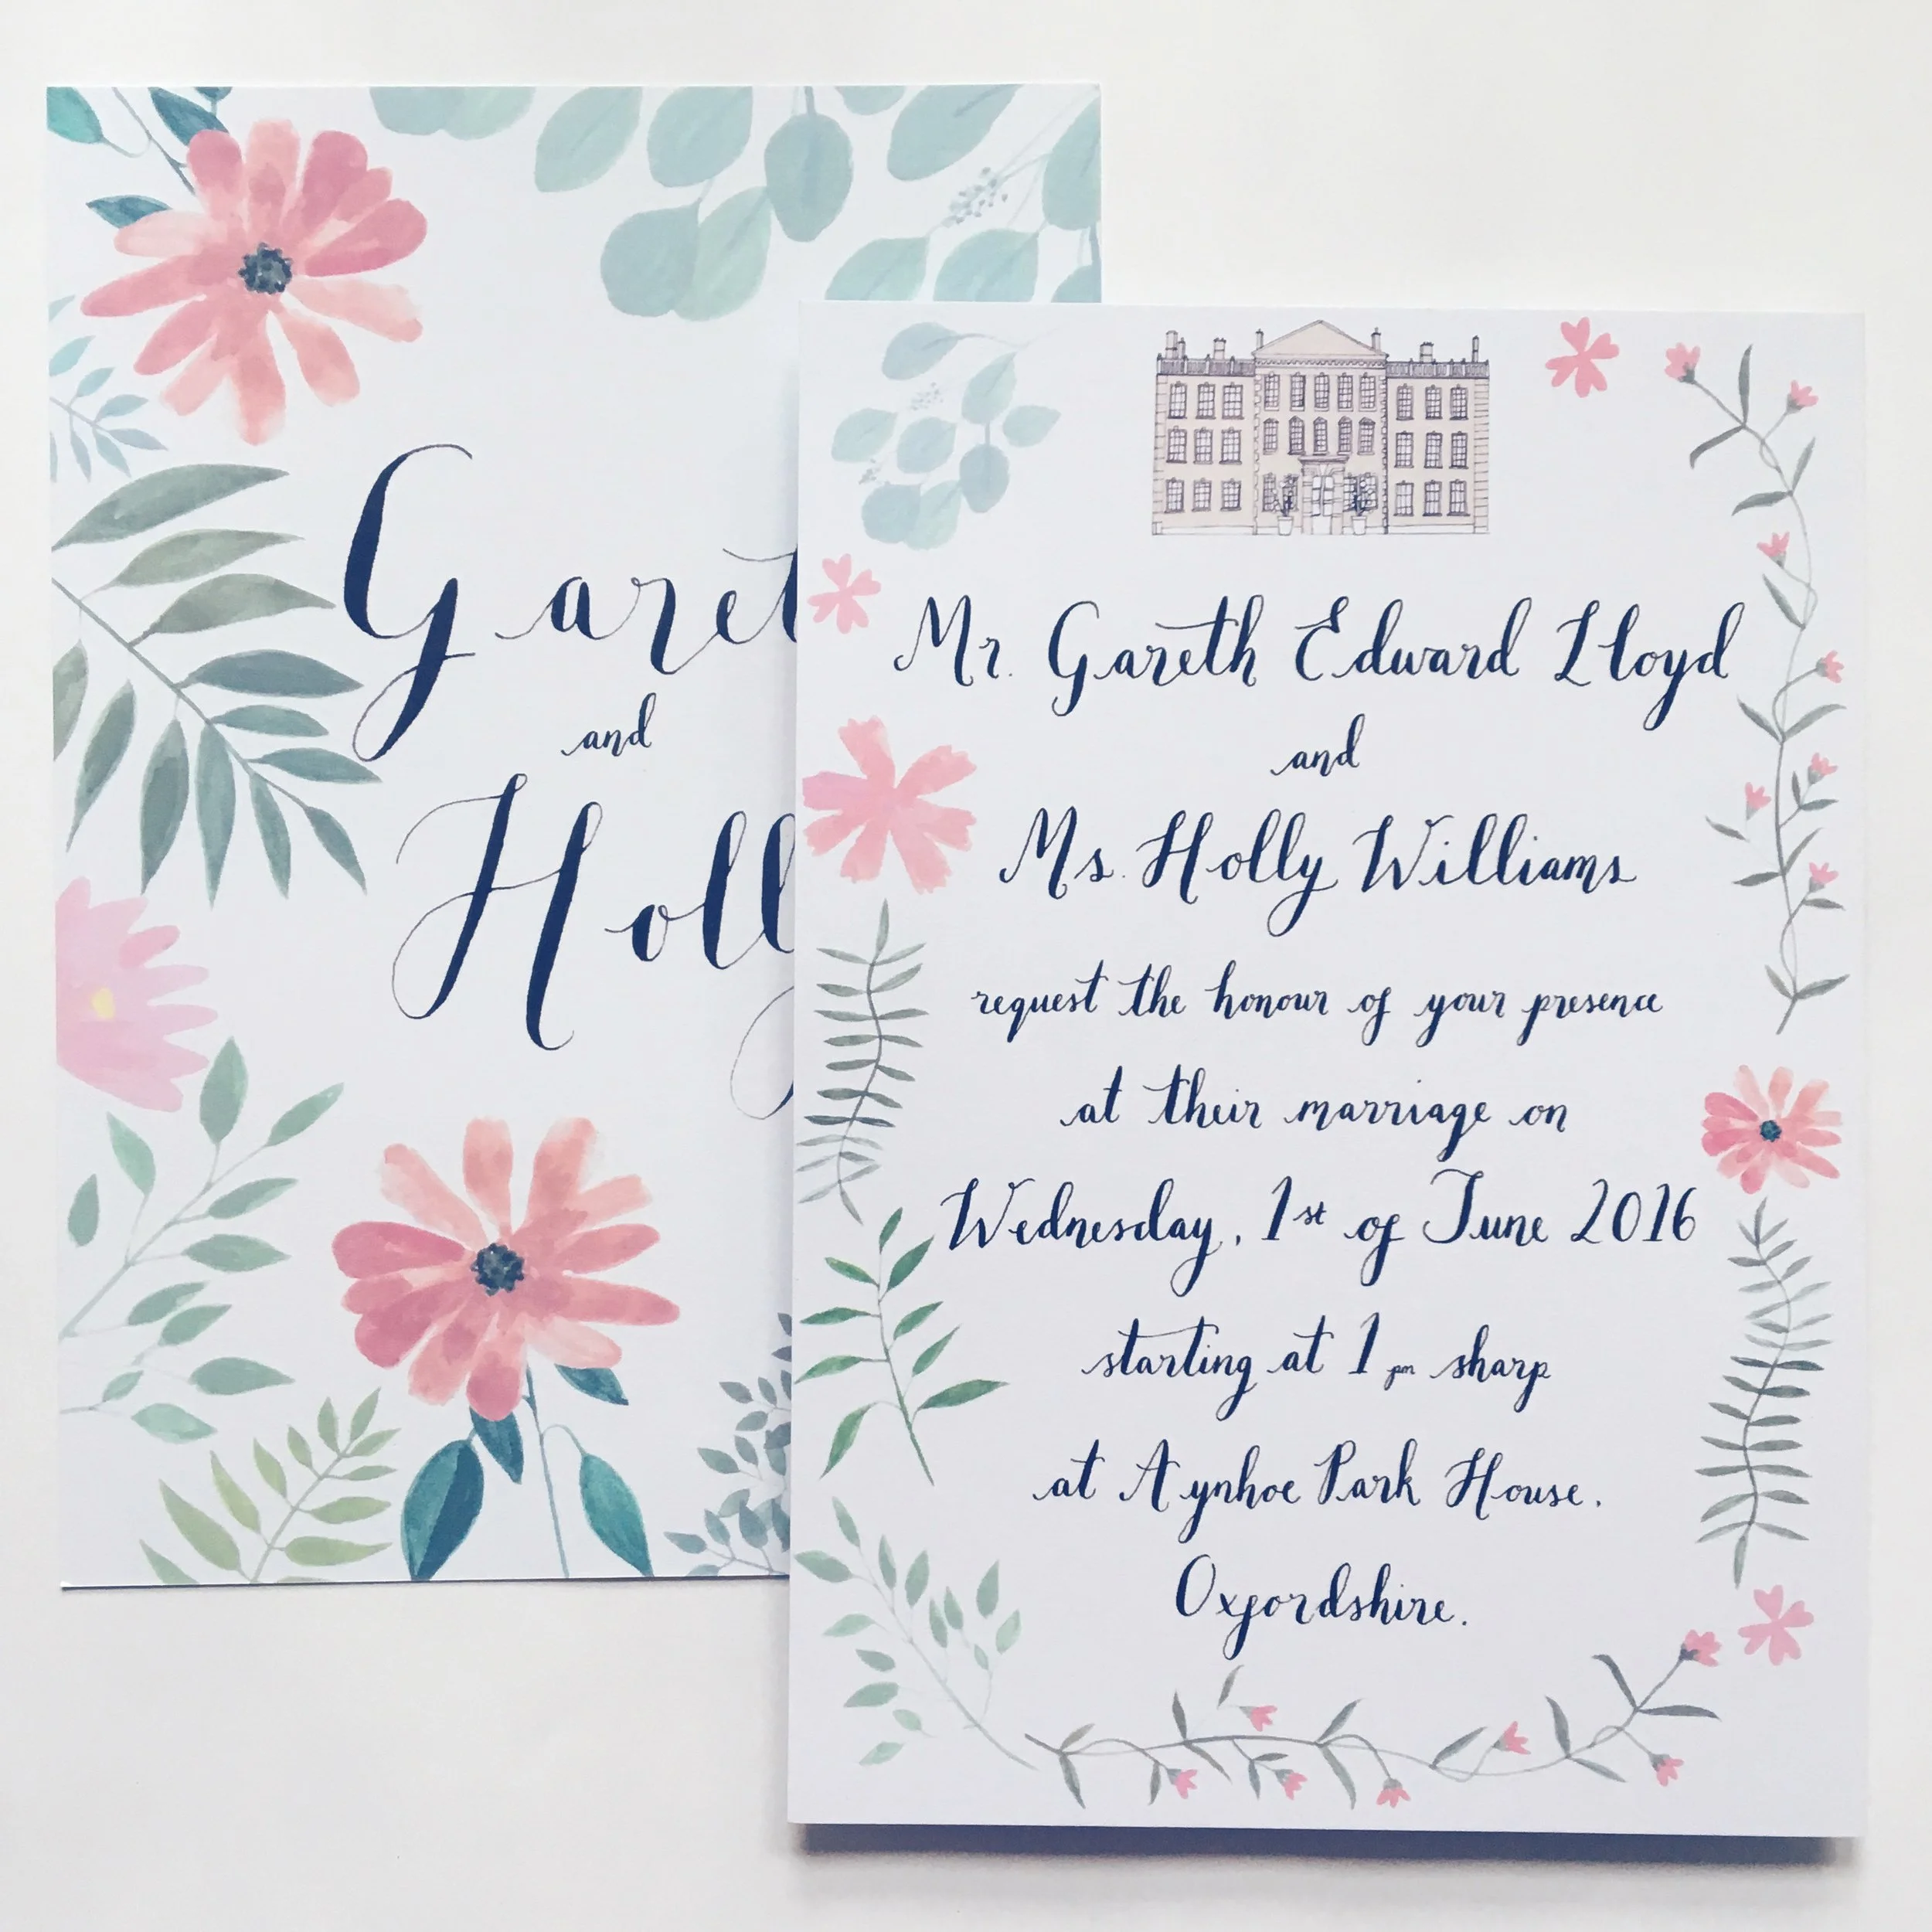 Garet
and
Holly
Mr. Gareth Edward Lloyd
and
Ms. Holly Williams
request the honour of your presence
at their marriage on
Wednesday, 1st of June 2016
starting at 1 pm sharp
at Aynhoe Park House.
Oxfordshire.